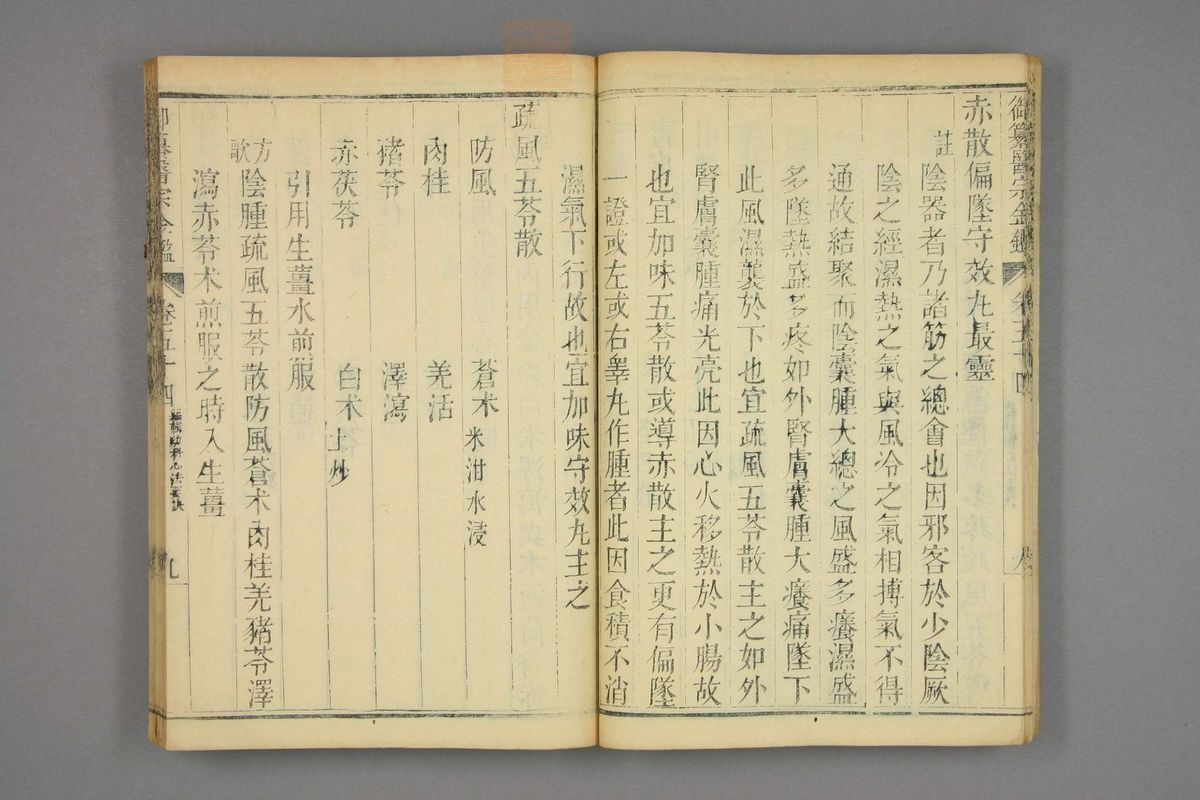 御纂醫宗金鑑 卷五十四
赤散偏墜守效丸最靈
註陰器者乃諸筋之總會也因邪客於少陰厥
陰之經濕熱之氣與風冷之氣相搏氣不得
通故結聚而陰囊腫大總之風盛多癢濕盛
多墜熱盛多疼如外腎膚囊腫大癢痛墜下
此風濕襲於下也宜疏風五苓散主之如外
腎膚囊腫痛光亮此因心火移熱於小腸故
也宜加味五苓散或導赤散主之更有偏墜
一證或左或右睪丸作腫者此因食積不消
濕氣下行故也宜加味守效丸主之
疏風五苓散
防風 蒼术米泔水浸
肉桂 羌活
豬苓 澤瀉
赤茯苓 白术土炒
引用生薑水煎服
方歌 陰腫疏風五苓散防風蒼术肉桂羌豬苓澤
瀉赤苓术煎服之時入生薑
御纂醫宗金鑑 卷五十四 編輯幼科心法要訣 九